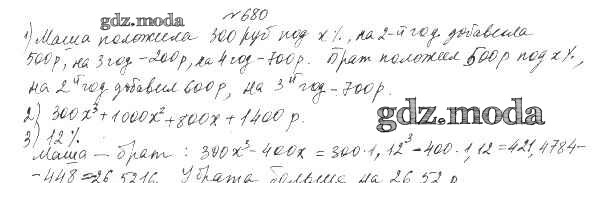 №680
gdz.moda
1) Маша положила 300 руб под х%, на 2-й год добавила
500р, на 3 год-200р, на 4 год-700р. Брат положил 500р под х%,
на 2й год добавил 600р, на 3й год-700р.
2) 300х³+1000х²+800х+1400р.
gdz.moda
3) 12%.
Маша - брат: 300х³-400х=300·1,12³-400·1,12=421,4784-
-448=26,5216. У брата больше на 26 52 р